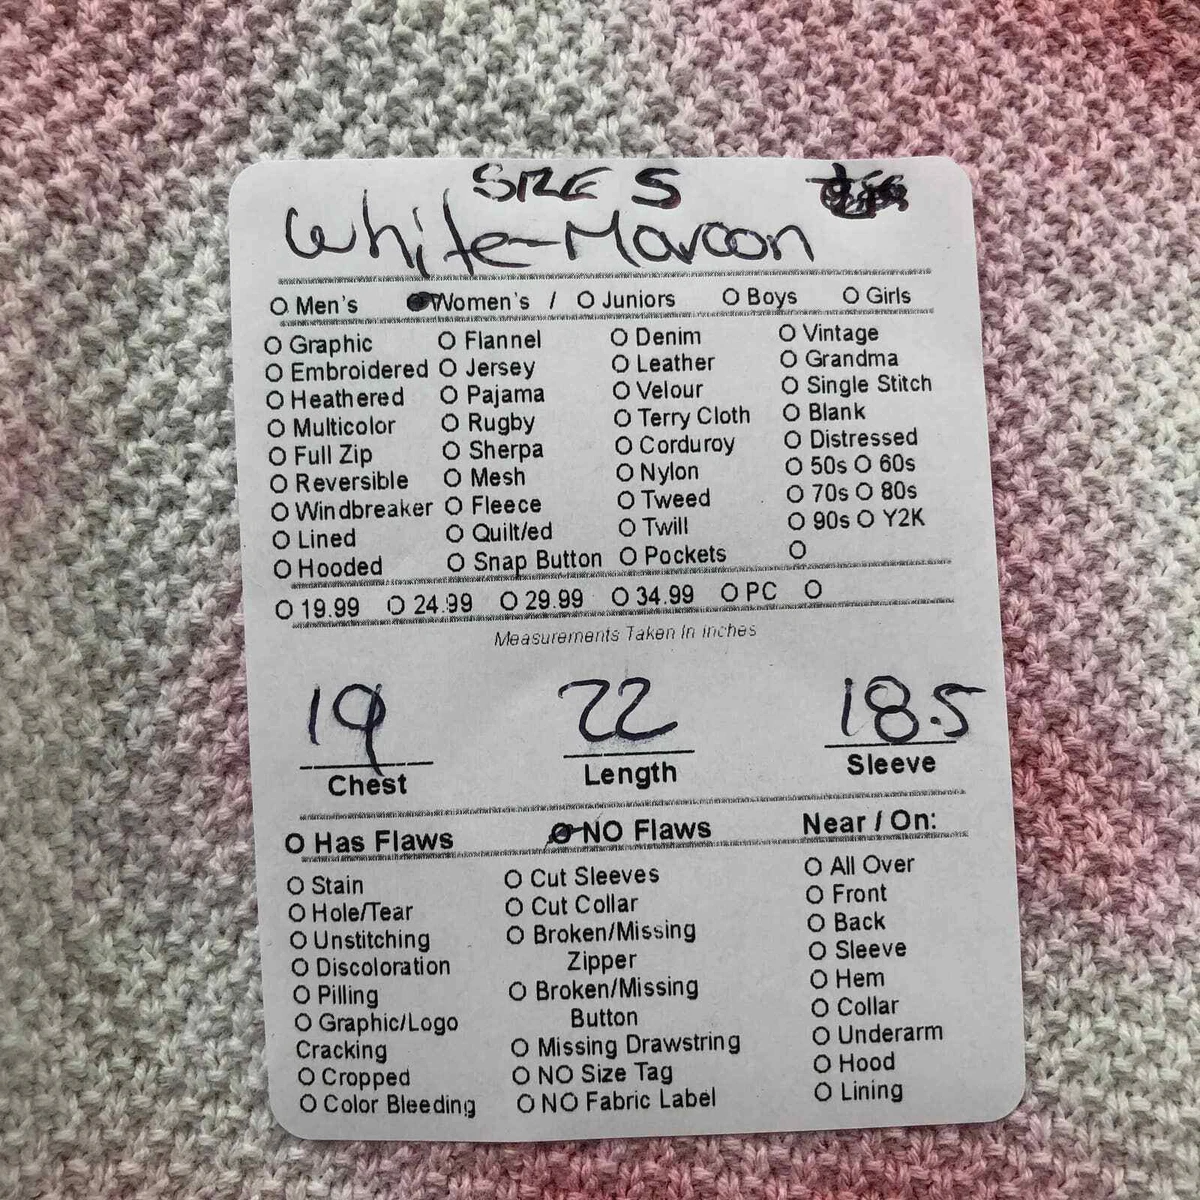 SIZE S
White-Maroon
Men's Women's / Juniors Boys Girls
Graphic Flannel Denim Vintage
Embroidered Jersey Leather Grandma
Heathered Pajama Velour Single Stitch
Multicolor Rugby Terry Cloth Blank
Full Zip Sherpa Corduroy Distressed
Reversible Mesh Nylon 50s 60s
Windbreaker Fleece Tweed 70s 80s
Lined Quilt/ed Twill 90s Y2K
Hooded Snap Button Pockets
19.99 24.99 29.99 34.99 PC
Measurements Taken In inches
19 22 18.5
Chest Length Sleeve
Has Flaws NO Flaws Near / On:
Stain Cut Sleeves All Over
Hole/Tear Cut Collar Front
Unstitching Broken/Missing Back
Discoloration Zipper Sleeve
Pilling Broken/Missing Hem
Graphic/Logo Button Collar
Cracking Missing Drawstring Underarm
Cropped NO Size Tag Hood
Color Bleeding NO Fabric Label Lining